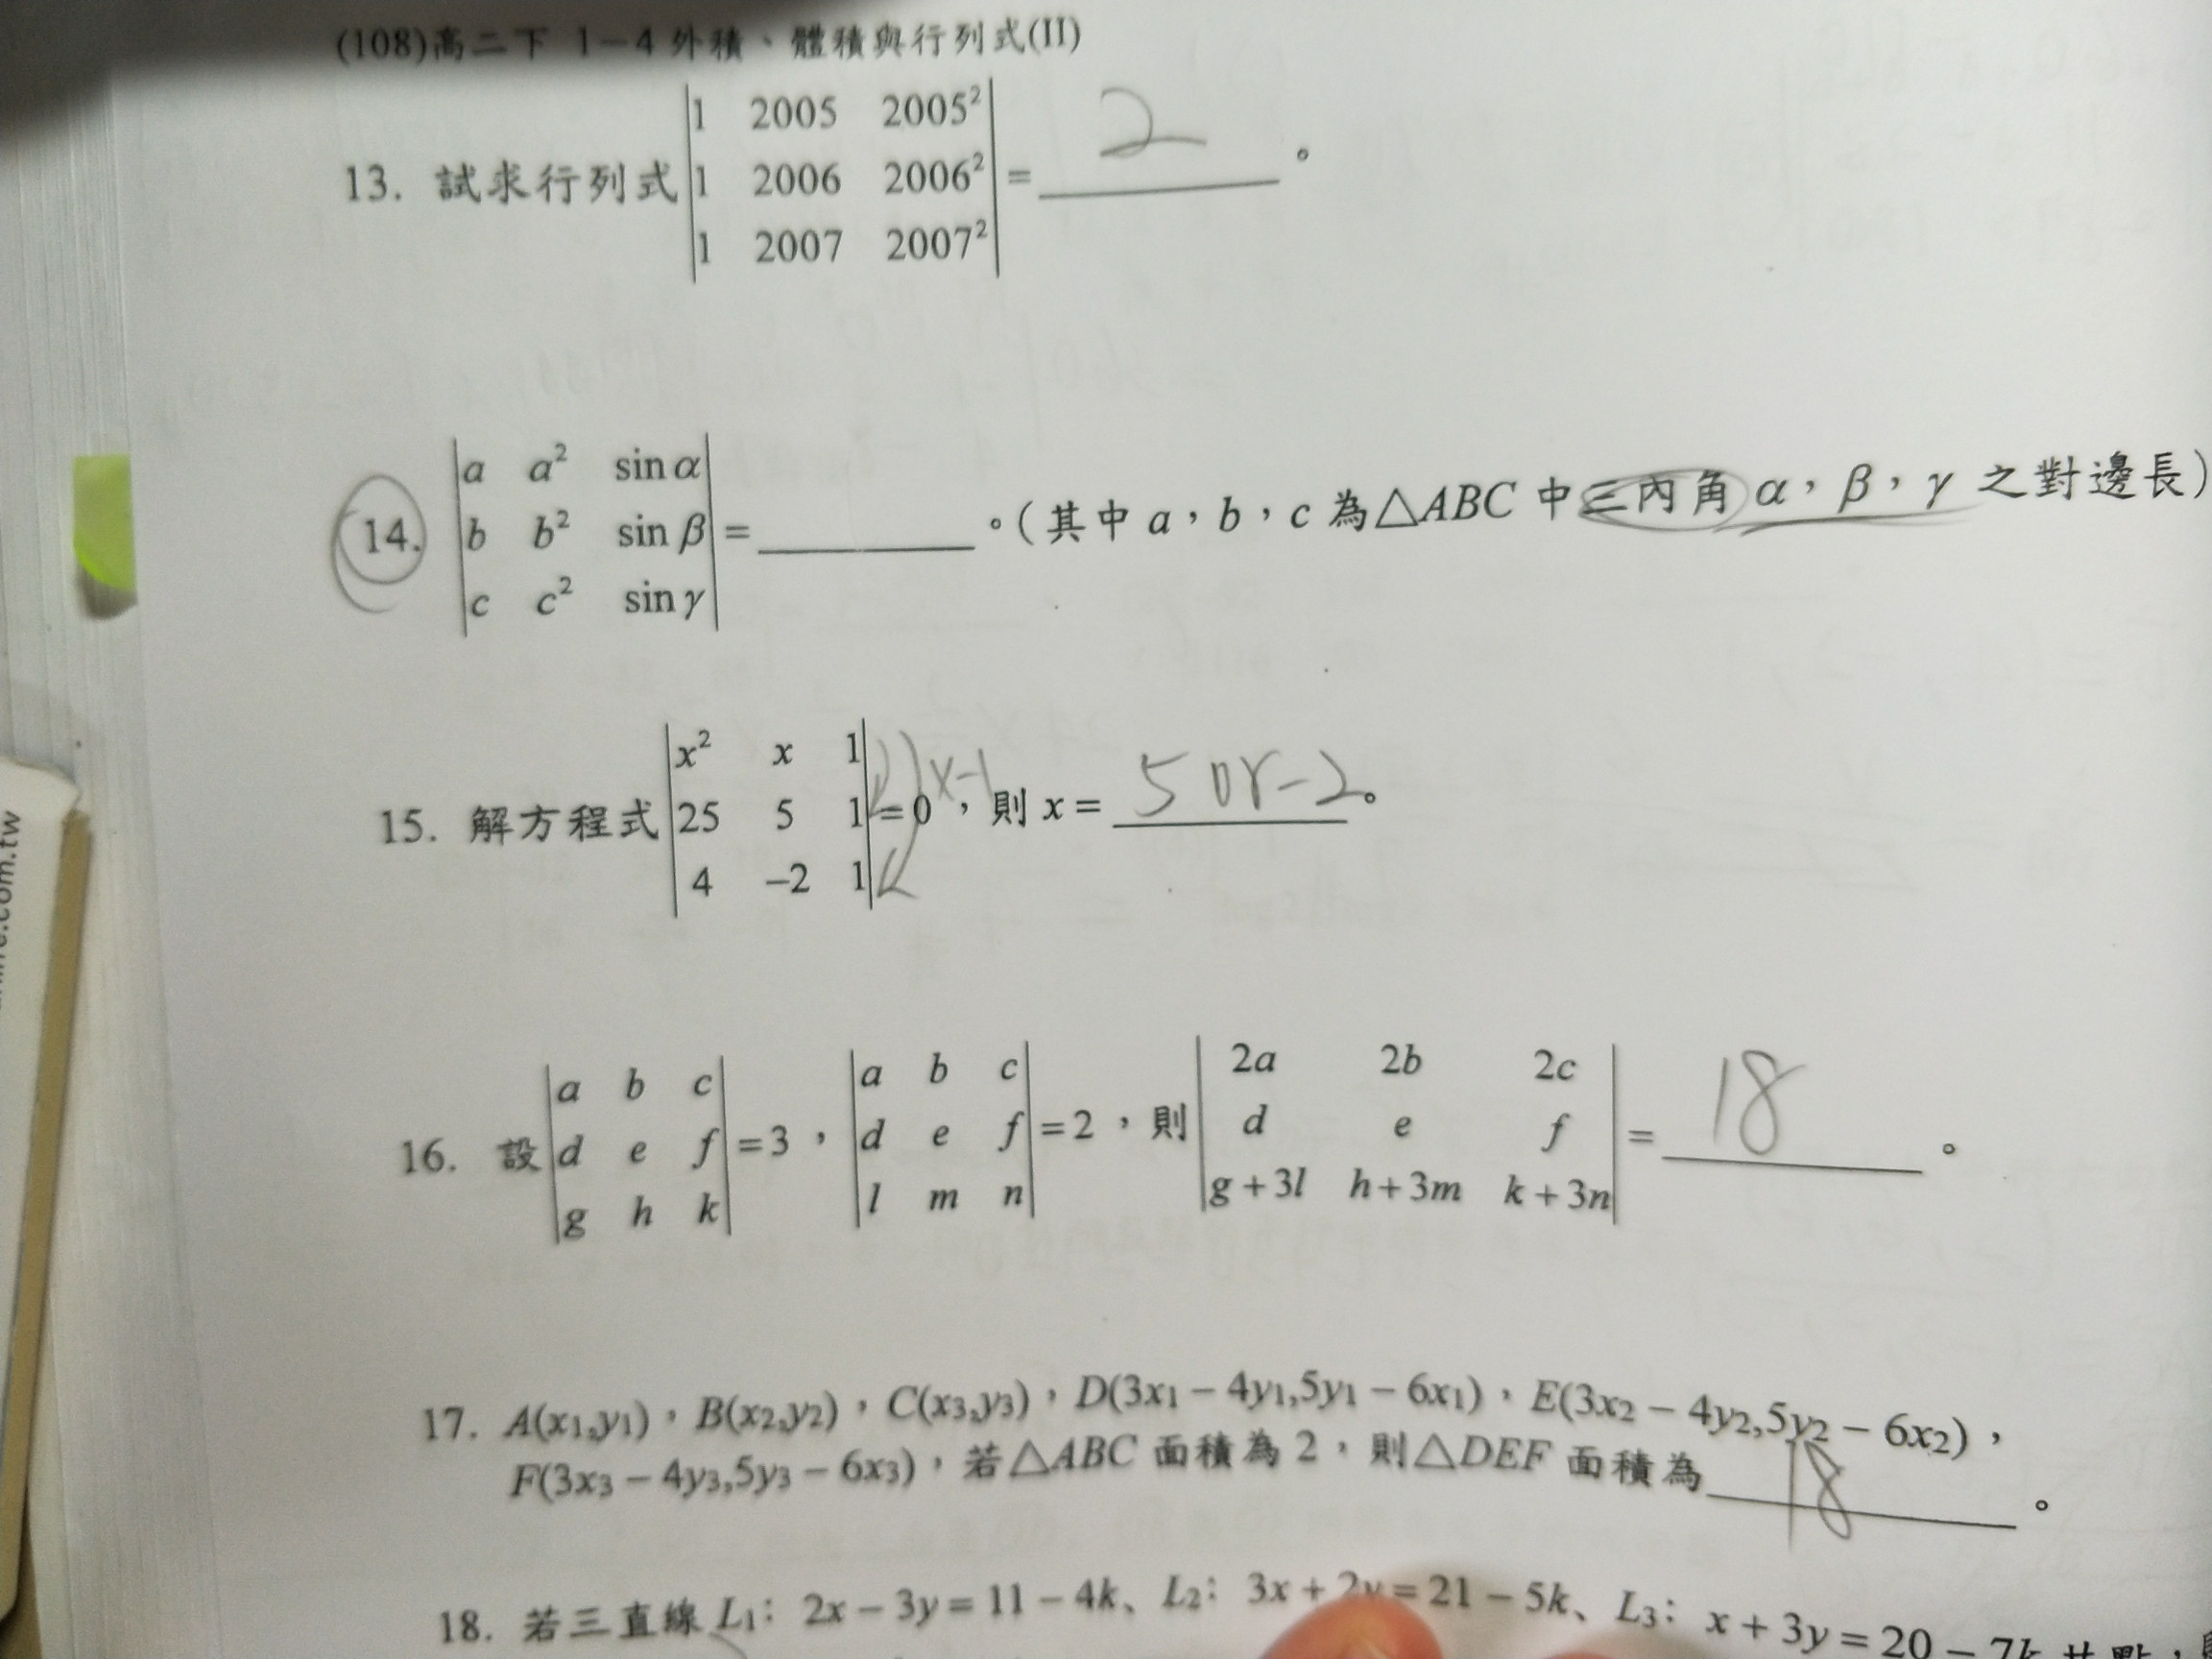 (108)高二下 1-4 外積、體積與行列式(II)
13. 試求行列式 |1 2005 2005²|
|1 2006 2006²| = 2 。
|1 2007 2007²|
14. |a a² sin α|
|b b² sin β| = ____。(其中 a,b,c 為△ABC 中三內角 α,β,γ 之對邊長)
|c c² sin γ|
15. 解方程式 |x² x 1| x-1
|25 5 1| =0,則 x = 5 or -2。
|4 -2 1|
16. 設 |a b c| |a b c| |2a 2b 2c|
|d e f| =3, |d e f| =2,則 |d e f| = 18 。
|g h k| |l m n| |g+3l h+3m k+3n|
17. A(x₁,y₁),B(x₂,y₂),C(x₃,y₃),D(3x₁-4y₁,5y₁-6x₁),E(3x₂-4y₂,5y₂-6x₂),
F(3x₃-4y₃,5y₃-6x₃),若△ABC 面積為 2,則△DEF 面積為 18 。
18. 若三直線 L₁: 2x-3y=11-4k、L₂: 3x+2y=21-5k、L₃: x+3y=20-7k 共點,
.com.tw